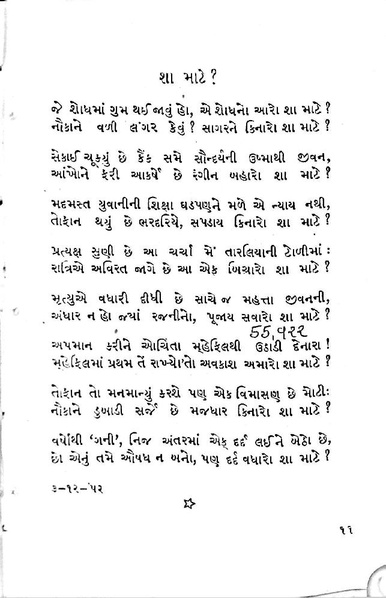 શા માટે?
જે શોધમાં ગુમ થઈ જાવું હો, એ શોધનો આરો શા માટે?
નૌકાને વળી લંગર કેવું? સાગરને કિનારો શા માટે?
સેકાઈ ચૂક્યું છે કૈંક સમે સૌન્દર્યની ઉષ્માથી જીવન,
આંખોને ફરી આકર્ષે છે રંગીન બહારો શા માટે?
મદમસ્ત યુવાનીની શિક્ષા ઘડપણુને મળે એ ન્યાય નથી,
તોફાન થયું છે ભરદરિયે, સપડાય કિનારો શા માટે?
પ્રત્યક્ષ સુણી છે આ ચર્ચા મેં તારલિયાની ટોળીમાં:
રાત્રિએ અવિરત જાગે છે આ એક બિચારો શા માટે?
મૃત્યુએ વધારી દીધી છે સાચે જ મહત્તા જીવનની,
અંધાર ન હો જ્યાં રજનીનો, પૂજાય સવારો શા માટે?
55,૧૨૨
અપમાન કરીને ઓચિંતા મહેફિલથી ઉઠાડી દેનારા!
મહેફિલમાં પ્રથમ તેં રાખ્યો'તો અવકાશ અમારો શા માટે?
તોફાન તો મનમાન્યું કરશે પણ એક વિમાસણ છે મોટી:
નૌકાને ડુબાડી સર્જે છે મજધાર કિનારો શા માટે?
વર્ષોથી 'ગની', નિજ અંતરમાં એક દર્દ લઈને બેઠો છે,
છો એનું તમે ઔષધ ન બનો, પણ દર્દ વધારો શા માટે?
૩-૧૨-'૫૩
૧૧